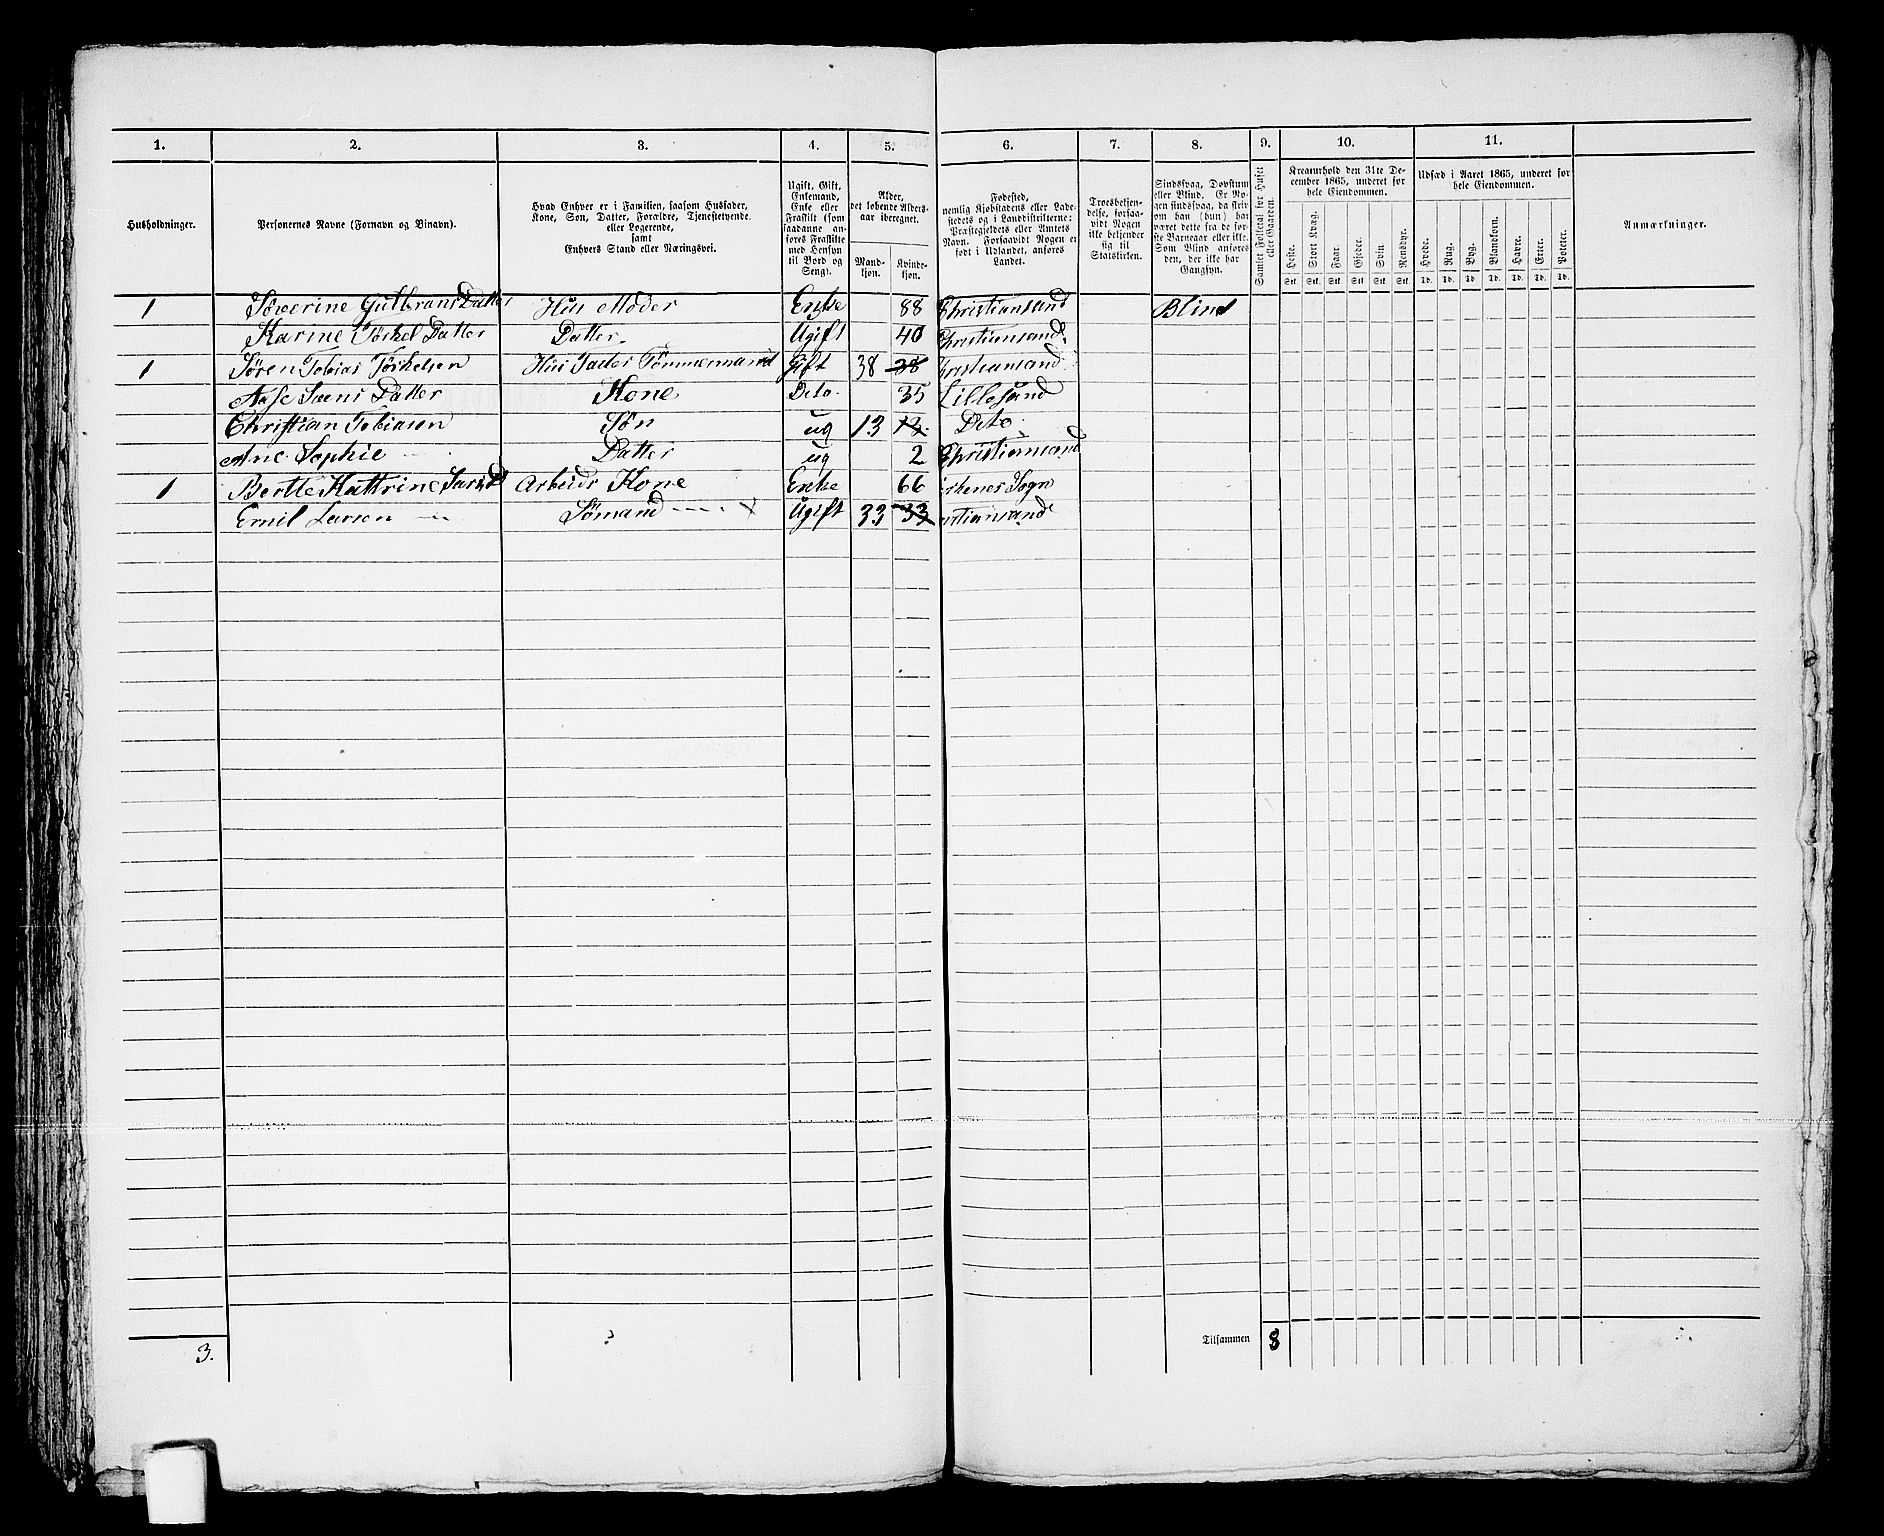 1. 2. 3. 4. 5. 6. 7. 8. 9. 10. 11.
Husholdninger.
Personernes Navne (Fornavn og Binavn).
Hvad Enhver er i Familien, saasom Husfader,
Kone, Søn, Datter, Forældre, Tjenestetyende
eller Logerende,
samt
Enhvers Stand eller Næringsvei.
Ugift, Gift,
Enkemand,
Enke eller
Fraskilt (som
saadanne an-
føres Fraskilte
med Hensyn
til Bord og
Seng).
Alder,
det løbende Alders-
aar iberegnet.
Mand-
kjøn.
Kvinde-
kjøn.
Fødested,
nemlig Kjøbstadens eller Lade-
stedets og i Landdistrikterne:
Præstegjeldets eller Amtets
Navn. Forsaavidt Nogen er
født i Udlandet, anføres
Landet.
Troesbekjen-
delse, forsaa-
vidt Nogen
ikke bekjender
sig til
Statskirken.
Sindssvag, Døvstum
eller Blind. Er No-
gen sindssvag, da skriv
om han (hun) har
været dette fra de før-
ste Barneaar eller ikke.
Som Blind anføres
den, der ikke har
Gangsyn.
Samlet Folketal for Huset
eller Gaarden.
Kreaturhold den 31te De-
cember 1865, underet for
hele Eiendommen.
Heste. Stort Kvæg. Faar. Gjeder. Svin. Rensdyr.
Stk. Stk. Stk. Stk. Stk. Stk.
Udsæd i Aaret 1865, underet for
hele Eiendommen.
Hvede. Rug. Byg. Blandkorn. Havre. Erter. Poteter.
Td. Td. Td. Td. Td. Td. Td.
Anmærkninger.
1 Söverine Gulbrans Datter Hus Moder Enke 88 Christiansand Blind
Karine Törkel Datter Datter Ugift 40 Christiansand
1 Sören Tobias Törkelsen Hus Fader Tömmermand Gift 38 38 Christiansand
Aase Svens Datter Kone Deto 35 Lillesand
Christian Tobiasen Sön ug 13 13 Deto
Ane Sophie Datter ug 2 Christiansand
1 Berthe Kathrine Arbeids Kone Enke 66 Sogn
Emil Larsen Sömand Ugift 33 33 istiansand
3. Tilsammen 8